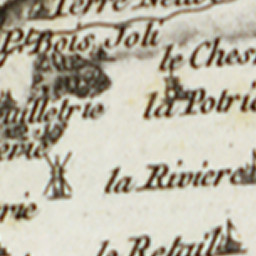 Terre
Pt. Bois Joli
le Ches
la Potrie
uilletrie
erie
la Riviere
rie
le Retail